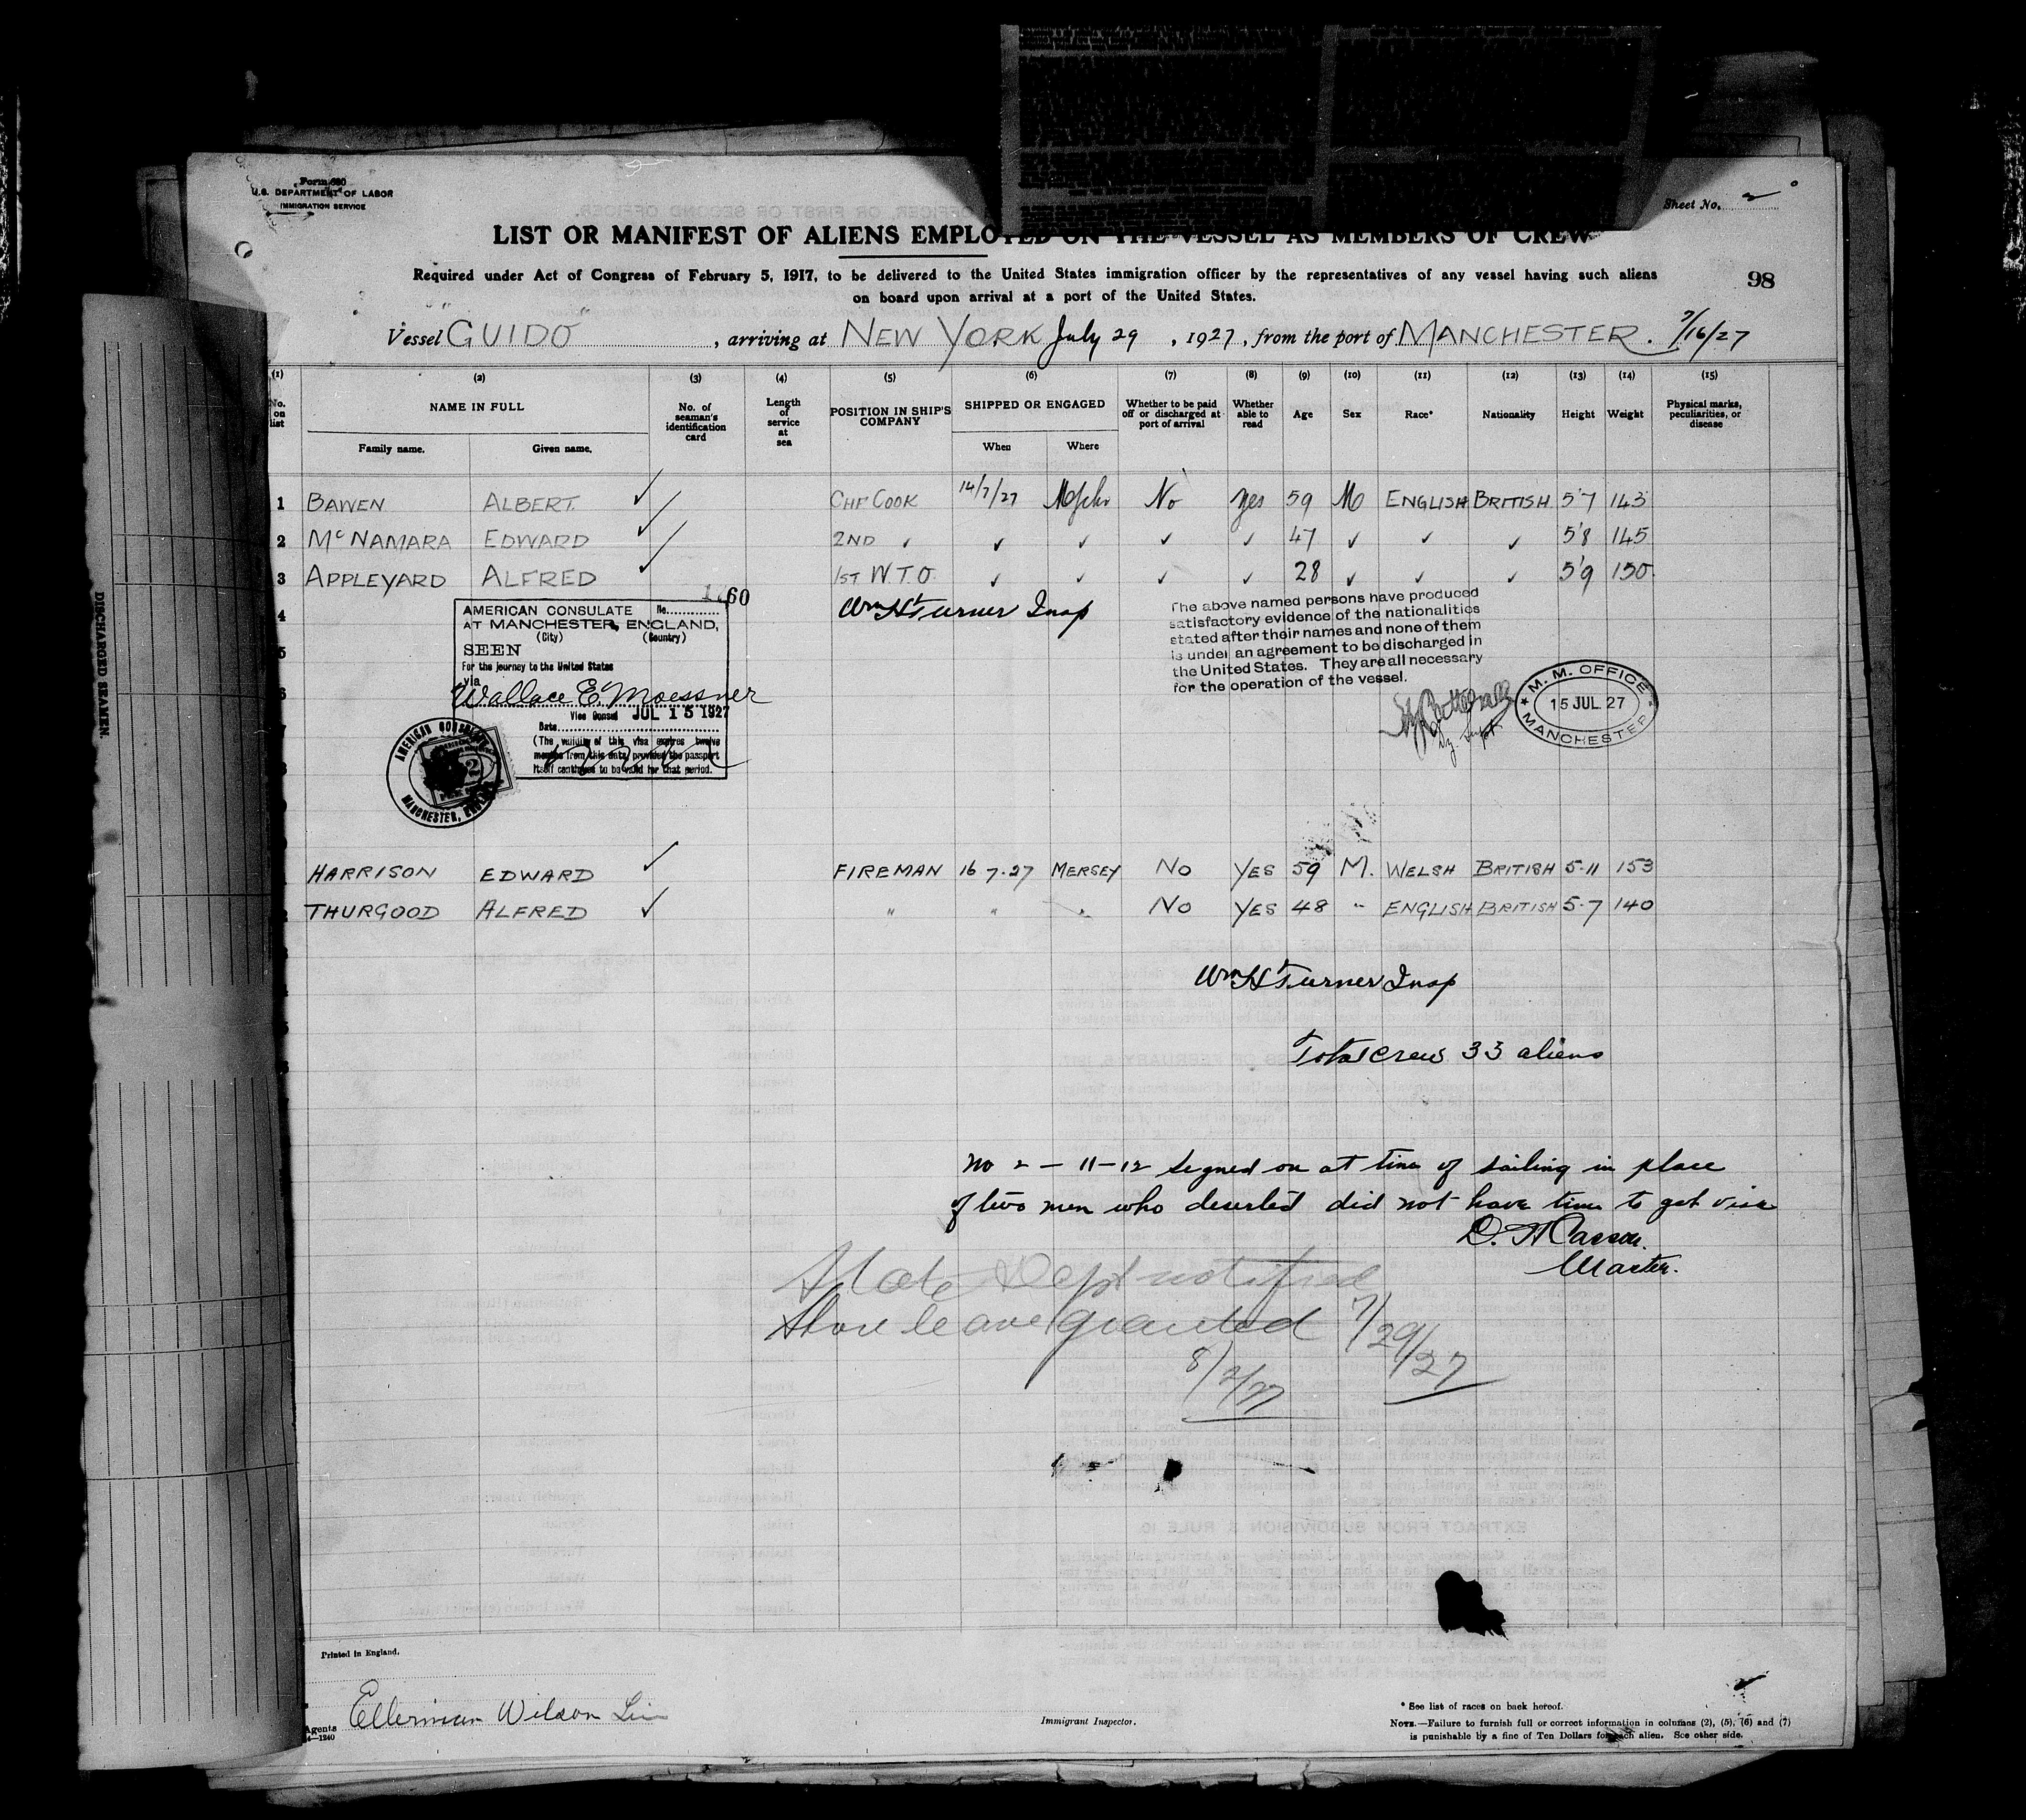 Form 680
U.S. DEPARTMENT OF LABOR
IMMIGRATION SERVICE
Sheet No. 2
LIST OR MANIFEST OF ALIENS EMPLOYED ON THE VESSEL AS MEMBERS OF CREW
Required under Act of Congress of February 5, 1917, to be delivered to the United States immigration officer by the representatives of any vessel having such aliens
on board upon arrival at a port of the United States.
98
Vessel "GUIDO", arriving at NEW YORK July 29, 1927, from the port of MANCHESTER. 7/16/27
(1) (2) (3) (4) (5) (6) (7) (8) (9) (10) (11) (12) (13) (14) (15)
No. on list NAME IN FULL Family name. Given name. No. of seaman's identification card Length of service at sea POSITION IN SHIP'S COMPANY SHIPPED OR ENGAGED When Where Whether to be paid off or discharged at port of arrival Whether able to read Age Sex Race* Nationality Height Weight Physical marks, peculiarities, or disease
1 BAWEN ALBERT. ✓ CHF COOK 14/7/27 No Yes 59 M ENGLISH BRITISH 5'7 143
2 McNAMARA EDWARD ✓ 2ND ✓ ✓ ✓ ✓ ✓ 47 ✓ ✓ ✓ 5'8 145
3 APPLEYARD ALFRED ✓ 1ST W.T.O. ✓ ✓ ✓ ✓ 28 ✓ ✓ ✓ 5'9 150
4 Wm H Turner Insp
60
AMERICAN CONSULATE No.
AT MANCHESTER, ENGLAND,
(City) (Country)
SEEN
For the journey to the United States
via
Wallace E. Moessner
Vice Consul JUL 15 1927
Date
(The validity of this visa expires twelve
months from this date provided the passport
itself continues to be valid for that period.
AMERICAN CONSULATE
MANCHESTER, ENGLAND
The above named persons have produced
satisfactory evidence of the nationalities
stated after their names and none of them
is under an agreement to be discharged in
the United States. They are all necessary
for the operation of the vessel.
Dy. Supt
M. M. OFFICE
15 JUL 27
MANCHESTER
5
HARRISON EDWARD ✓ FIREMAN 16 7.27 MERSEY NO YES 59 M. WELSH BRITISH 5-11 153
THURGOOD ALFRED ✓ " " " NO YES 48 " ENGLISH BRITISH 5-7 140
Wm H Turner Insp
Total crew 33 aliens
No 2 – 11–12 signed on at time of sailing in place
of two men who deserted did not have time to get visa
D. H Carson.
Master.
State Dept notified
Shore leave granted 7/29/27
8/2/27
DISCHARGED SEAMEN.
Printed in England.
Agents Ellerman Wilson Line
4—1240
Immigrant Inspector.
* See list of races on back hereof.
NOTE.—Failure to furnish full or correct information in columns (2), (5), (6) and (7)
is punishable by a fine of Ten Dollars for each alien. See other side.